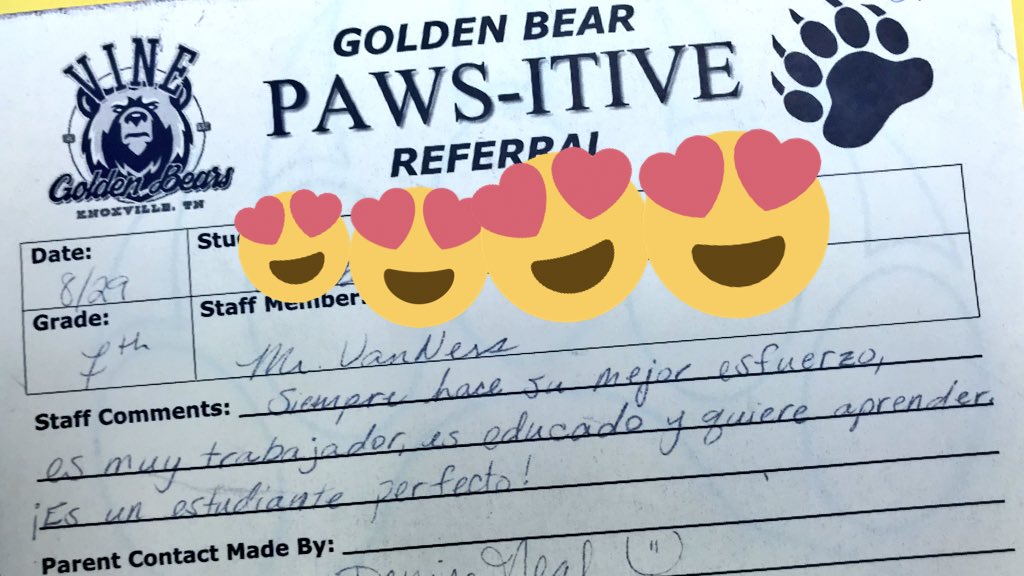 VINE
Golden Bears
KNOXVILLE, TN
GOLDEN BEAR
PAWS-ITIVE
REFERRAL
Date:
8/29
Grade:
7th
Staff Member:
Mr. VanNess
Staff Comments: Siempre hace su mejor esfuerzo,
es muy trabajador, es educado y quiere aprender.
¡Es un estudiante perfecto!
Parent Contact Made By:
Neal